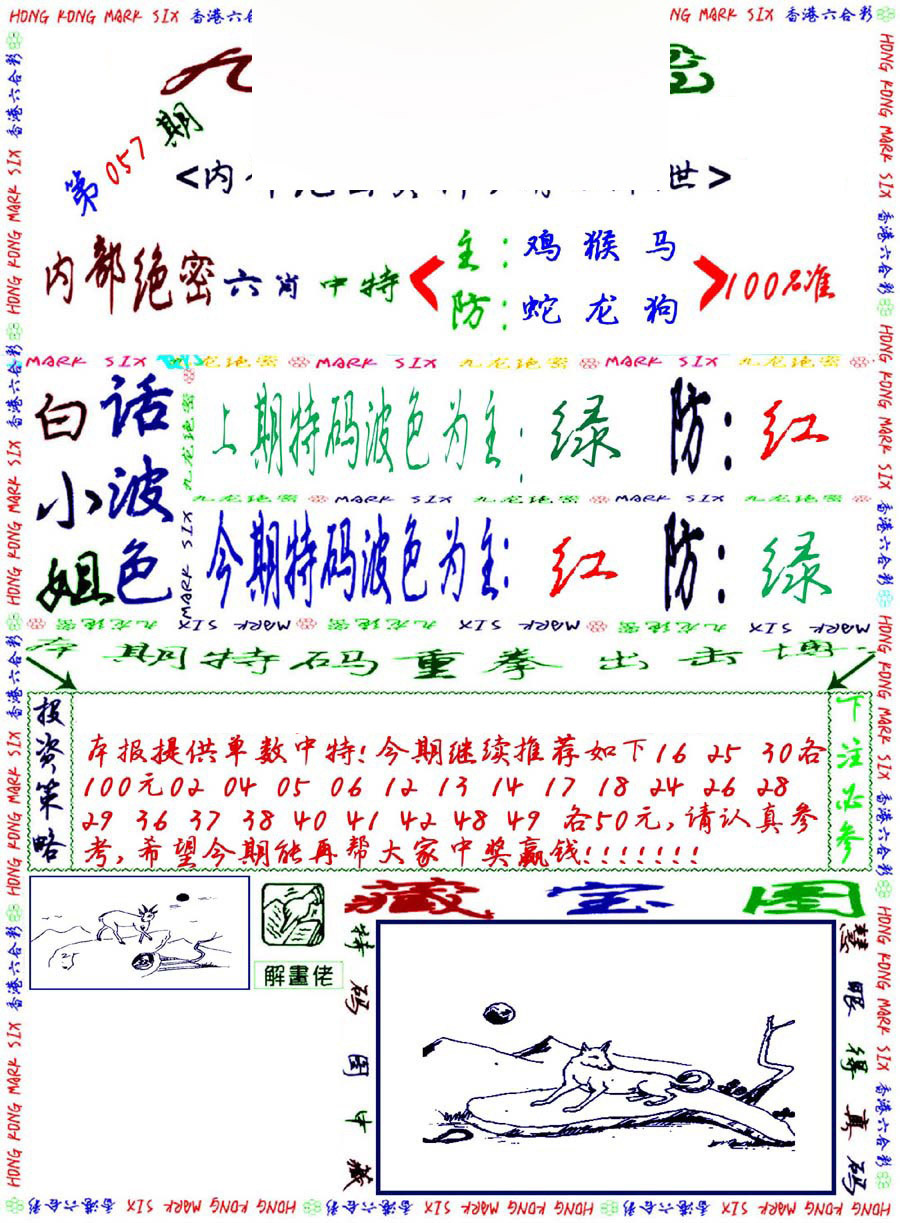 HONG KONG MARK SIX 香港六合彩
第057期
<内
世>
内部绝密六肖中特
主:鸡猴马
防:蛇龙狗
100名准
MARK SIX 九龙绝密 MARK SIX 九龙绝密 MARK SIX 九龙绝密
白话
小波
姐色
上期特码波色为主:绿 防:红
九龙绝密 MARK SIX 九龙绝密 MARK SIX 九龙绝密
今期特码波色为主:红 防:绿
MARK SIX 九龙绝密 MARK SIX 九龙绝密 MARK SIX
期特码重拳出击
投资策略
本报提供单数中特!今期继续推荐如下16 25 30各
100元02 04 05 06 12 13 14 17 18 24 26 28
29 36 37 38 40 41 42 48 49 各50元,请认真参
考,希望今期能再帮大家中奖赢钱!!!!!!!
下注必参
解畫佬
藏宝图
特码图中藏
慧眼得真码
HONG KONG MARK SIX 香港六合彩